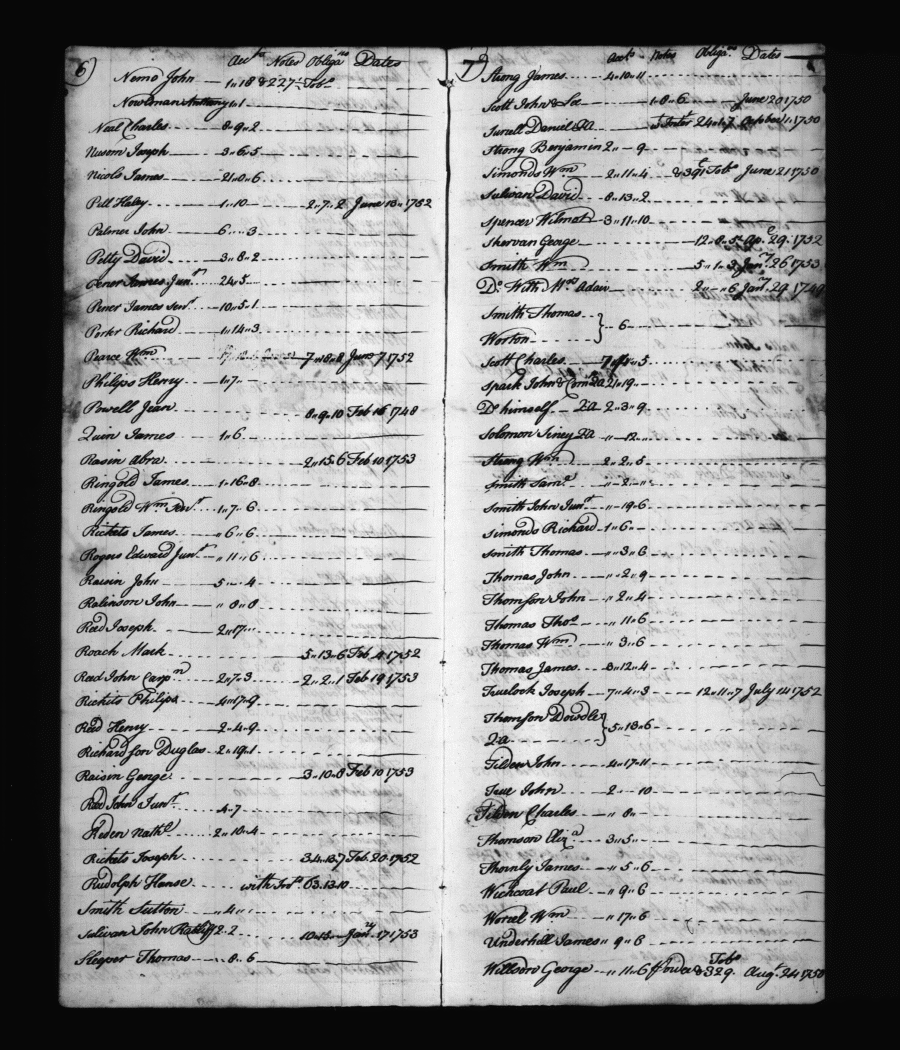 6) Acct.s Notes Obliga.ns Dates
Nemo John 1"18 & 227 Tob.o
Newlonan Anthony 1"1
Neal Charles 8"9"2
Nusom Joseph 3"6"5
Nicols James 21"0"6
Pell Haley 1"10 2"7"2 June 10"1752
Palmer John 6"-"3
Petty David 3"8"2
James Jun.r 24"5
Pener James Sen.r 10"5"1
Porter Richard 1"14"3
Pearce W.m 7"18"8 June 7 1752
Philips Henry 1"7"
Powell Jean 8"9"10 Feb 16 1748
Quin James 1"6
Rasin Abra. 2"15"6 Feb 10 1753
Ringold James 1"16"8
Ringold W.m Sen.r 1"7"6
Rickets James "6"6
Rogers Edward Jun.r "11"6
Raisin John 5"-"4
Robinson John "8"8
Reed Joseph 2"17"
Roach Mark 5"13"6 Feb 4 1752
Reed John Carp.n 2"7"3 2"2"1 Feb 19 1753
Rickets Philips 4"17"9
Reed Henry 2"4"9
Richardson Duglas 2"19"1
Raisin George 3"10"8 Feb 10 1753
Reed John Jun.r 4"7
Reden Nath.l 2"10"4
Rickets Joseph 34"13"7 Feb. 20 1752
Rudolph Hanse with Int.t 63"13"10
Smith Sutton "4"
Sulivan John 2"2 10"15 Jan.y 17 1753
Sleeper Thomas "8"6
7) Acct.s Notes Obliga.ns Dates
Strong James 4"10"11
Scott John & Co 1"8"6 June 20 1750
Daniel 24"1"7 October 1"1750
Strong Benjamin 2"-"9
Simonds W.m 2"11"4 & 391 Tob.o June 21 1750
Sulivan David 8"13"2
Spencer Wilmot 3"11"10
Skervan George 12"8"5 Ap.e 29"1752
Smith W.m 5"1"3 Jan.ry 26 1753
D.o With M.rs Adair 2"-"6 Jan.ry 29 1749
Smith Thomas
Worton } 6"
Scott Charles 5
Spark John & 2"19"
D.o himself Qa 2"3"9
Solomon Siney Qa "12"
Strong W.m 2"2"5
Smith Sam.l "2"
Smith John Jun.r "19"6
Simonds Richard 1"6"
Smith Thomas "3"6
Thomas John "2"9
Thomson John "2"4
Thomas Tho.s "11"6
Thomas W.m "3"6
Thomas James 8"12"4
Truelock Joseph 7"4"3 12"11"7 July 14 1752
Thomson Dowdle
Qa } 5"18"6
Tilden John 4"17"11
True John 2"-"10
Tilden Charles "8"
Thomson Eliz.a 3"5"
Thornly James "5"6
Wichcoat Paul "9"6
Worrel W.m "17"6
Underhill James "9"6
Willson George "11"6 & 329 Tob.o Aug.t 24 1750